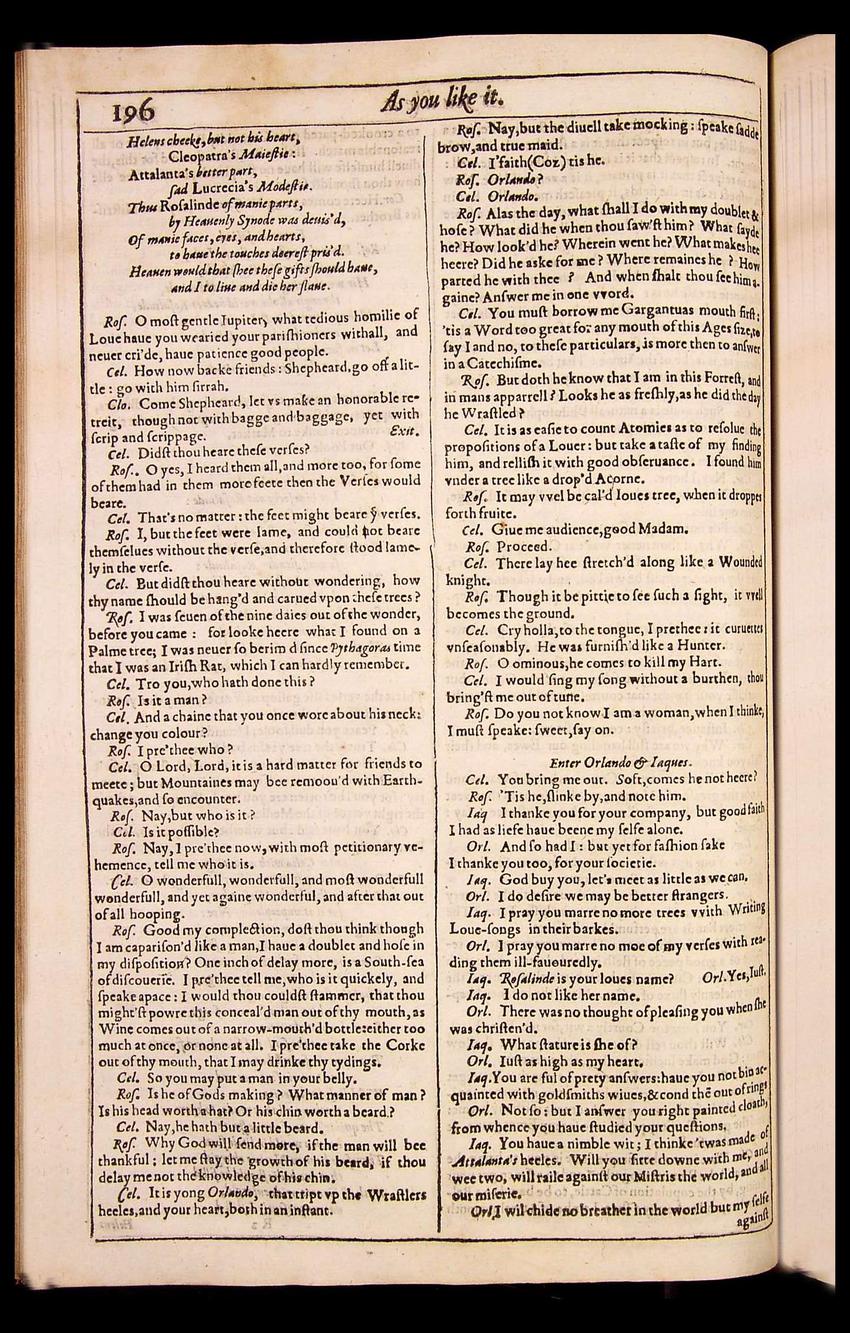 196
As you like it.
Helens cheeke, but not his heart,
Cleopatra's Maieſtie:
Attalanta's better part,
ſad Lucrecia's Modeſtie.
Thus Roſalinde of manie parts,
by Heauenly Synode was deuis'd,
Of manie faces, eyes, and hearts,
to haue the touches deereſt pris'd.
Heauen would that ſhee theſe gifts ſhould haue,
and I to liue and die her ſlaue.
Roſ. O moſt gentle Iupiter, what tedious homilie of
Loue haue you wearied your pariſhioners withall, and
neuer cri'de, haue patience good people.
Cel. How now backe friends: Shepheard, go off a lit-
tle: go with him ſirrah.
Clo. Come Shepheard, let vs make an honorable re-
treit, though not with bagge and baggage, yet with
ſcrip and ſcrippage. Exit.
Cel. Didſt thou heare theſe verſes?
Roſ. O yes, I heard them all, and more too, for ſome
of them had in them more feete then the Verſes would
beare.
Cel. That's no matter: the feet might beare ẏ verſes.
Roſ. I, but the feet were lame, and could not beare
themſelues without the verſe, and therefore ſtood lame-
ly in the verſe.
Cel. But didſt thou heare without wondering, how
thy name ſhould be hang'd and carued vpon theſe trees?
Roſ. I was ſeuen of the nine daies out of the wonder,
before you came: for looke heere what I found on a
Palme tree; I was neuer ſo berim d ſince Pythagoras time
that I was an Iriſh Rat, which I can hardly remember.
Cel. Tro you, who hath done this?
Roſ. Is it a man?
Cel. And a chaine that you once wore about his neck:
change you colour?
Roſ. I pre'thee who?
Cel. O Lord, Lord, it is a hard matter for friends to
meete; but Mountaines may bee remoou'd with Earth-
quakes, and ſo encounter.
Roſ. Nay, but who is it?
Cel. Is it poſſible?
Roſ. Nay, I pre'thee now, with moſt petitionary ve-
hemence, tell me who it is.
Cel. O wonderfull, wonderfull, and moſt wonderfull
wonderfull, and yet againe wonderful, and after that out
of all hooping.
Roſ. Good my complection, doſt thou think though
I am capariſon'd like a man, I haue a doublet and hoſe in
my diſpoſition? One inch of delay more, is a South-ſea
of diſcouerie. I pre'thee tell me, who is it quickely, and
ſpeake apace: I would thou couldſt ſtammer, that thou
might'ſt powre this conceal'd man out of thy mouth, as
Wine comes out of a narrow-mouth'd bottle: either too
much at once, or none at all. I pre'thee take the Corke
out of thy mouth, that I may drinke thy tydings.
Cel. So you may put a man in your belly.
Roſ. Is he of Gods making? What manner of man?
Is his head worth a hat? Or his chin worth a beard?
Cel. Nay, he hath but a little beard.
Roſ. Why God will ſend more, if the man will bee
thankful; let me ſtay the growth of his beard, if thou
delay me not the knowledge of his chin.
Cel. It is yong Orlando, that tript vp the Wraſtlers
heeles, and your heart, both in an inſtant.
Roſ. Nay, but the diuell take mocking: ſpeake ſadde
brow, and true maid.
Cel. I'faith (Coz) tis he.
Roſ. Orlando?
Cel. Orlando.
Roſ. Alas the day, what ſhall I do with my doublet &
hoſe? What did he when thou ſaw'ſt him? What ſayde
he? How look'd he? Wherein went he? What makes hee
heere? Did he aske for me? Where remaines he? How
parted he with thee? And when ſhalt thou ſee him a-
gaine? Anſwer me in one vvord.
Cel. You muſt borrow me Gargantuas mouth firſt:
'tis a Word too great for any mouth of this Ages ſize, to
ſay I and no, to theſe particulars, is more then to anſwer
in a Catechiſme.
Roſ. But doth he know that I am in this Forreſt, and
in mans apparrell? Looks he as freſhly, as he did the day
he Wraſtled?
Cel. It is as eaſie to count Atomies as to reſolue the
propoſitions of a Louer: but take a taſte of my finding
him, and relliſh it with good obſeruance. I found him
vnder a tree like a drop'd Acorne.
Roſ. It may vvel be cal'd Ioues tree, when it droppes
forth fruite.
Cel. Giue me audience, good Madam.
Roſ. Proceed.
Cel. There lay hee ſtretch'd along like a Wounded
knight.
Roſ. Though it be pittie to ſee ſuch a ſight, it vvell
becomes the ground.
Cel. Cry holla, to the tongue, I prethee: it curuettes
vnſeaſonably. He was furniſh'd like a Hunter.
Roſ. O ominous, he comes to kill my Hart.
Cel. I would ſing my ſong without a burthen, thou
bring'ſt me out of tune.
Roſ. Do you not know I am a woman, when I thinke,
I muſt ſpeake: ſweet, ſay on.
Enter Orlando & Iaques.
Cel. You bring me out. Soft, comes he not heere?
Roſ. 'Tis he, ſlinke by, and note him.
Iaq I thanke you for your company, but good faith
I had as liefe haue beene my ſelfe alone.
Orl. And ſo had I: but yet for faſhion ſake
I thanke you too, for your ſocietie.
Iaq. God buy you, let's meet as little as we can.
Orl. I do deſire we may be better ſtrangers.
Iaq. I pray you marre no more trees vvith Writing
Loue-ſongs in their barkes.
Orl. I pray you marre no moe of my verſes with rea-
ding them ill-fauouredly.
Iaq. Roſalinde is your loues name? Orl. Yes, Iuſt.
Iaq. I do not like her name.
Orl. There was no thought of pleaſing you when ſhe
was chriſten'd.
Iaq. What ſtature is ſhe of?
Orl. Iuſt as high as my heart.
Iaq. You are ful of prety anſwers: haue you not bin ac-
quainted with goldſmiths wiues, & cond thē out of rings
Orl. Not ſo: but I anſwer you right painted cloath,
from whence you haue ſtudied your queſtions.
Iaq. You haue a nimble wit; I thinke 'twas made of
Attalanta's heeles. Will you ſitte downe with me, and
wee two, will raile againſt our Miſtris the world, and all
our miſerie.
Orl. I wil chide no breather in the world but my ſelfe
againſt